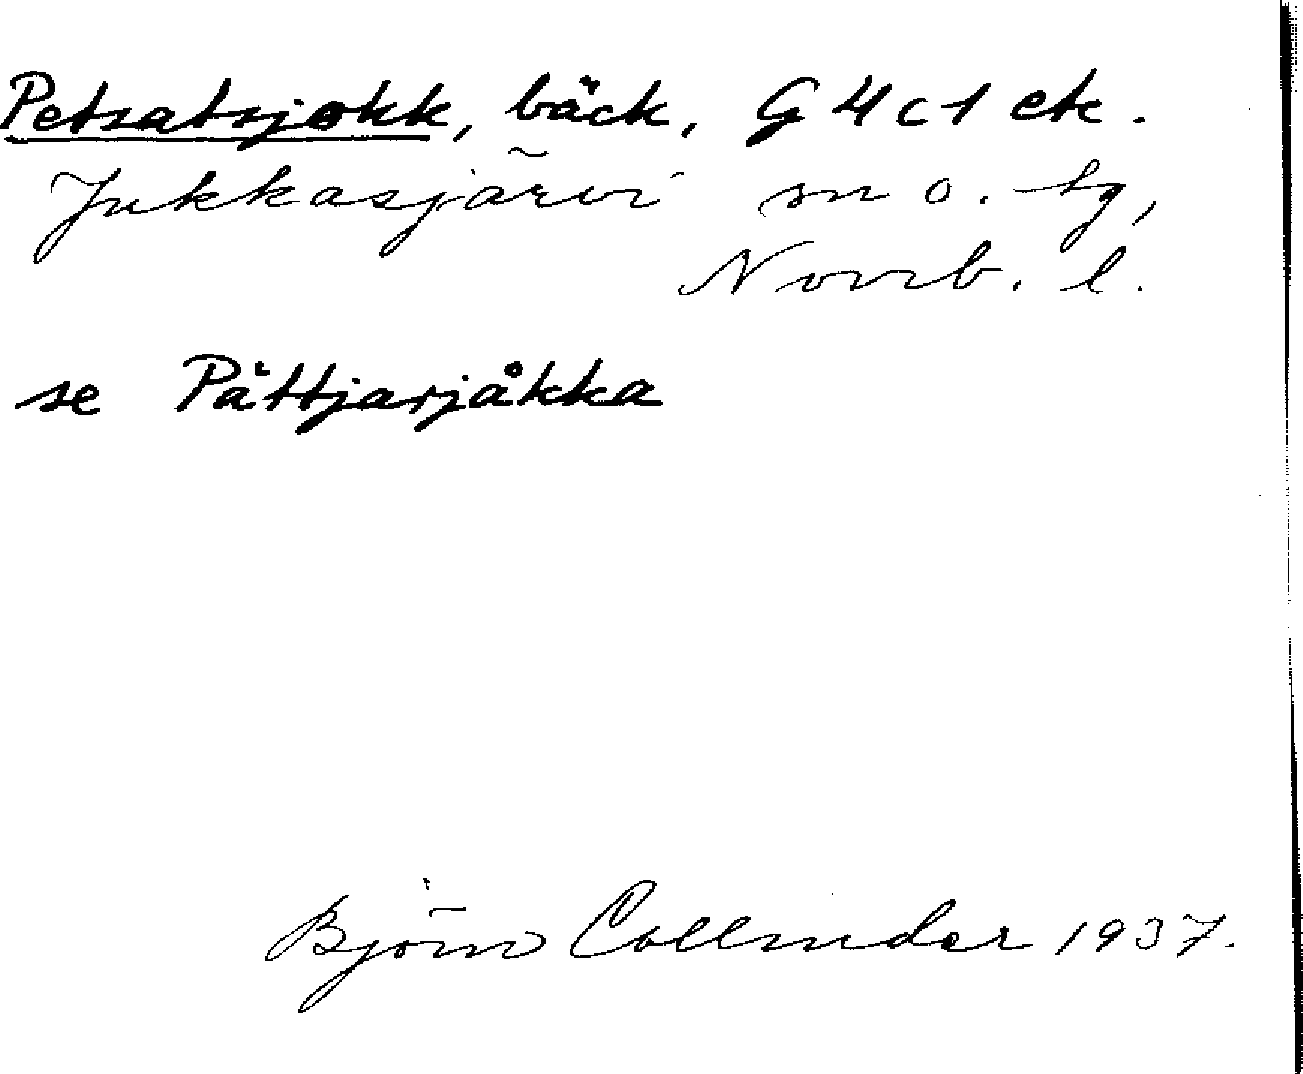 Petsatsjokk, bäck, G4c1 ek.
Jukkasjärvi sn o. tg,
Norrb. l.
se Pättjarjåkka
Björn Collinder 1937.